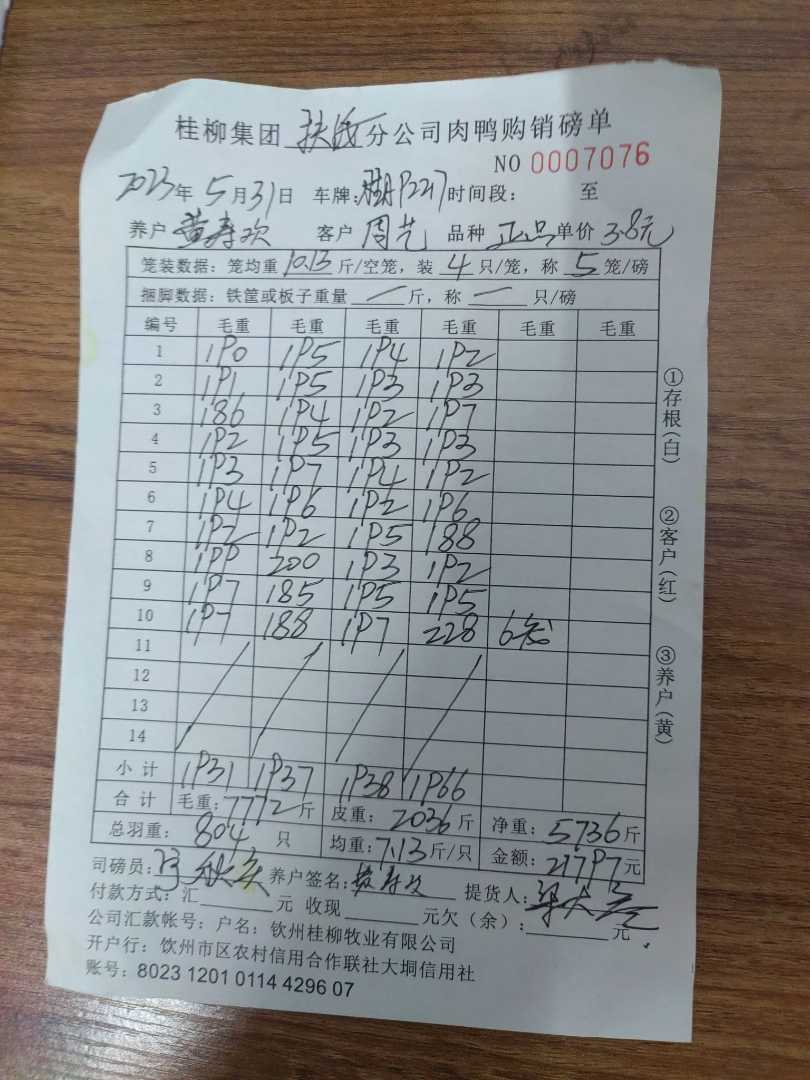 桂柳集团 扶绥 分公司肉鸭购销磅单
NO 0007076
2023年 5月31日 车牌: 时间段: 至
养户 黄寿欢 客户 周艺 品种 正品 单价 3.8元
笼装数据: 笼均重 10.13 斤/空笼, 装 4 只/笼, 称 5 笼/磅
捆脚数据: 铁筐或板子重量 一 斤, 称 一 只/磅
编号 毛重 毛重 毛重 毛重 毛重 毛重
1 190 195 194 192
2 191 195 193 193
3 186 194 192 197
4 192 195 193 193
5 193 197 194 192
6 194 196 192 196
7 192 192 195 188
8 199 200 193 192
9 197 185 195 195
10 197 188 197 228 6笼
11
12
13
14
小计 1931 1937 1938 1966
合计 毛重: 7772 斤 皮重: 2036 斤 净重: 5736 斤
总羽重: 804 只 均重: 7.13 斤/只 金额: 21797 元
司磅员: 养户签名: 黄寿欢 提货人:
付款方式: 汇 元 收现 元欠(余): 元
公司汇款帐号: 户名: 钦州桂柳牧业有限公司
开户行: 钦州市区农村信用合作联社大垌信用社
账号: 8023 1201 0114 4296 07
①存根(白)
②客户(红)
③养户(黄)